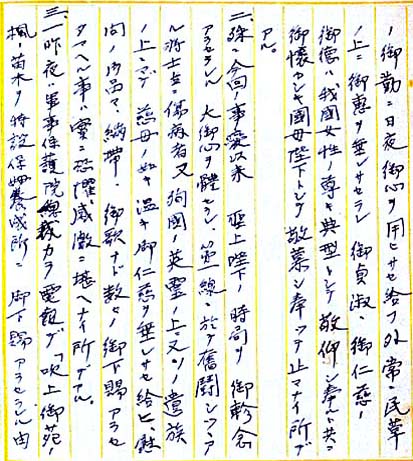 ノ御勤ニ日夜御心ヲ用ヒサセ給フ外常ニ民草
ノ上ニ御恵ヲ垂レサセラレ御貞淑、御仁慈ノ
御徳ハ我國女性ノ尊キ典型トシテ敬仰シ奉ルト共ニ
御懐カシキ國母陛下トシテ敬慕シ奉ツテ止マナイ所デ
アル。
二、殊ニ今回ノ事変以来 聖上陛下ノ時局ヲ御軫念
アラセラレル大御心ヲ體セラレ、第一線ニ於テ奮闘シツツア
ル将士並ニ傷病者又殉國ノ英霊ノ上ニ又ソノ遺族
ノ上ニマデ慈母ノ如キ温キ御仁慈ヲ垂レサセ給ヒ、慰
問ノ御品々、繃帯・御歌ナド数々ノ御下賜アラセ
タマヘル事ハ寔ニ恐懼感激ニ堪ヘナイ所デアル。
三、一昨夜ハ軍事保護院総裁カラ電報デ「吹上御苑ノ
楓ノ苗木ヲ特設保姆養成所ニ 御下賜アラセラル由